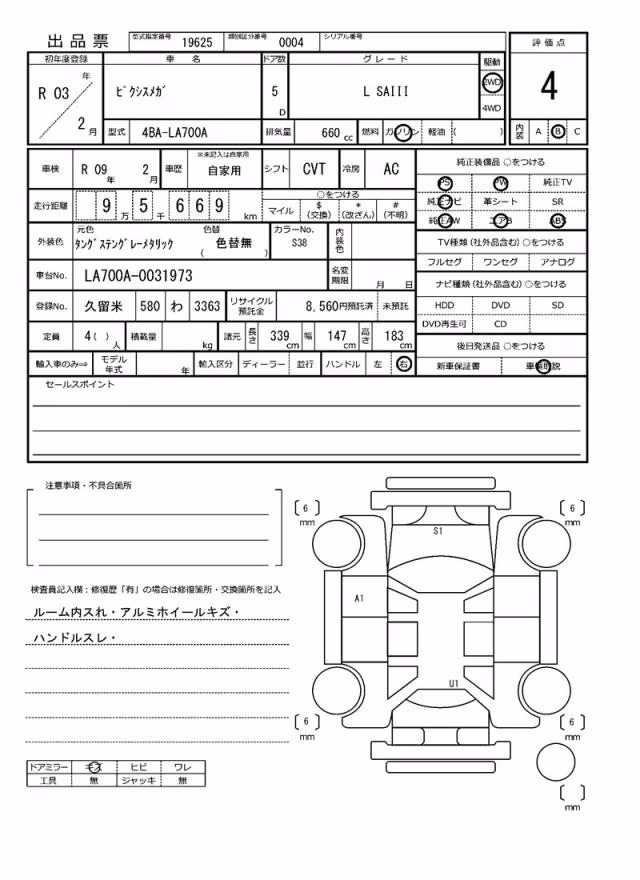 出品票
型式指定番号 19625 類別区分番号 0004 シリアル番号
評価点
4
内装 A B C
初年度登録 車名 ドア数 グレード 駆動
R 03 年 2 月
ﾋﾟｸｼｽﾒｶﾞ 5 D L SAIII 2WD 4WD
型式 4BA-LA700A 排気量 660 cc 燃料 ガソリン 軽油 ( )
車検 R 09 年 2 月 車歴 ※未記入は自家用 自家用 シフト CVT 冷房 AC
走行距離 9 万 5 千 6 6 9 km
○をつける
マイル $ (交換) * (改ざん) # (不明)
外装色 元色 ﾀﾝｸﾞｽﾃﾝｸﾞﾚｰﾒﾀﾘｯｸ 色替 ( 色替無 ) カラーNo. S38 内装色
車台No. LA700A-0031973 名変期限 月 日
登録No. 久留米 580 わ 3363 リサイクル預託金 8,560円預託済 未預託
定員 4( ) 人 積載量 kg 諸元 長さ 339 cm 幅 147 cm 高さ 183 cm
輸入車のみ⇒ モデル年式 年 輸入区分 ディーラー 並行 ハンドル 左 右
純正装備品 ○をつける
PS PW 純正TV
純正ナビ 革シート SR
純正AW エアB ABS
TV種類 (社外品含む) ○をつける
フルセグ ワンセグ アナログ
ナビ種類 (社外品含む) ○をつける
HDD DVD SD
DVD再生可 CD
後日発送品 ○をつける
新車保証書 車輌取説
セールスポイント
注意事項・不具合箇所
検査員記入欄：修復歴「有」の場合は修復箇所・交換箇所を記入
ルーム内スれ・アルミホイールキズ・
ハンドルスレ・
ドアミラー キズ ヒビ ワレ
工具 無 ジャッキ 無
6 mm
6 mm
S1
A1
U1
6 mm
6 mm
mm